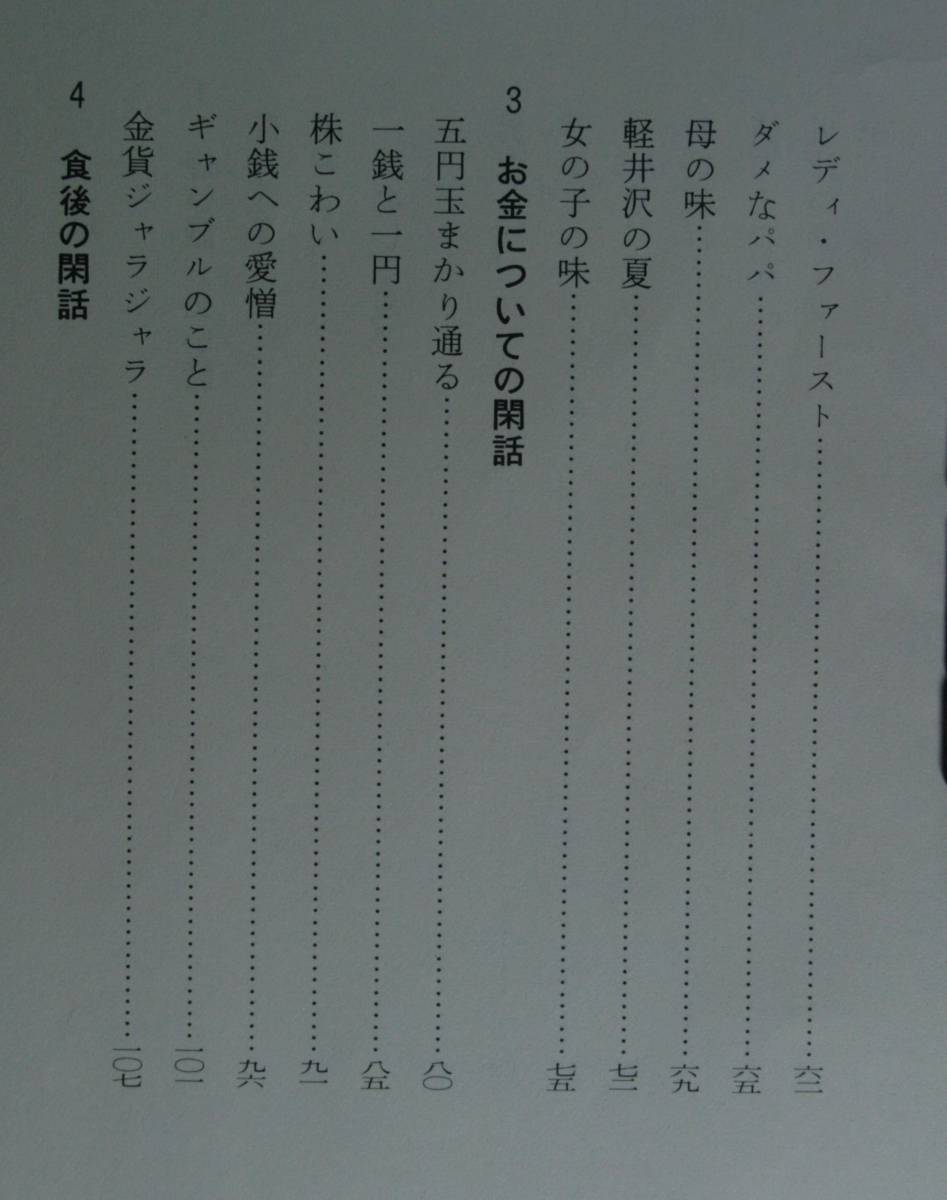 レディ・ファースト……………………六二
ダメなパパ……………………六五
母の味……………………六九
軽井沢の夏……………………七二
女の子の味……………………七五
3 お金についての閑話
五円玉まかり通る……………………八〇
一銭と一円……………………八五
株こわい……………………九一
小銭への愛憎……………………九六
ギャンブルのこと……………………一〇一
金貨ジャラジャラ……………………一〇七
4 食後の閑話